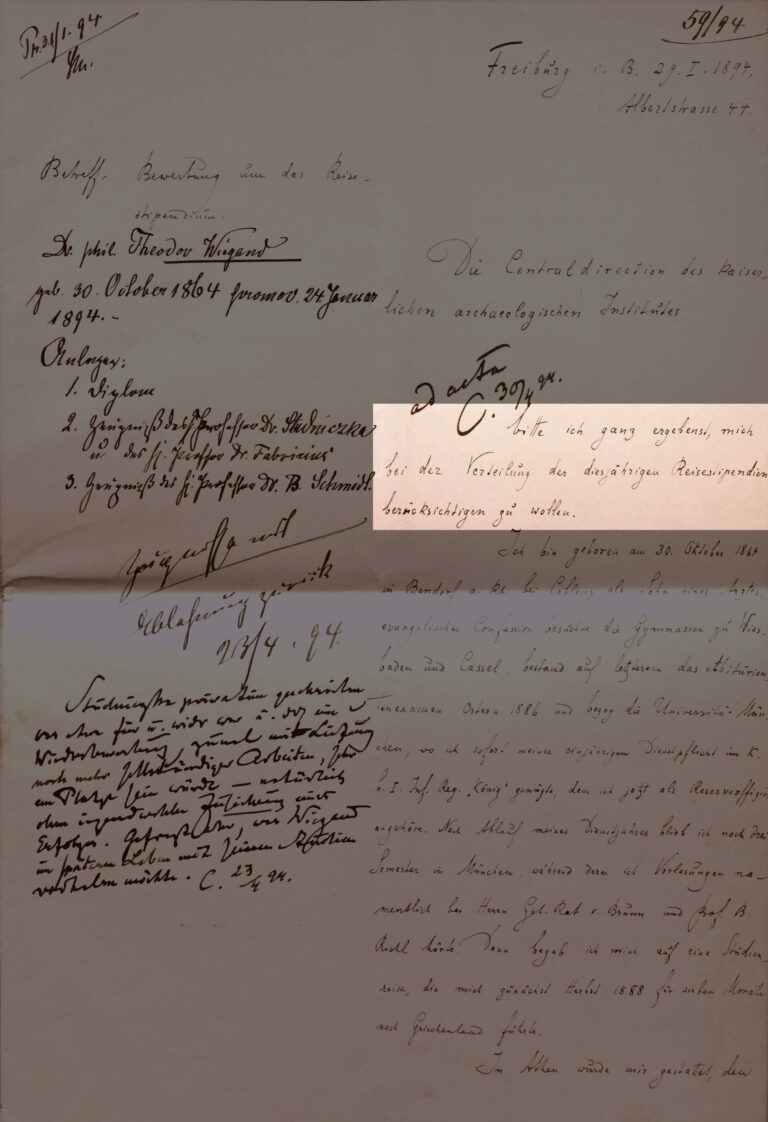 59/94
Freiburg i. B. 29. I. 1894,
Albertstrasse 44.
Betreff. Bewerbung um das Reise-
stipendium.
Dr. phil. Theodor Wiegand
geb. 30. October 1864 promov. 24 Januar
1894.-
Anlagen:
1. Diplom
2. Zeugniß des Professor Dr. Studniczka
u des H. Professor Dr. Fabricius
3. Zeugniß des H. Professor Dr. B. Schmidt.
Zeugnisse mit
Ablehnung zurück
23/4. 94.
Studniczka privatim geschrieben
was etwa für u. wider war u. daß eine
Wiederbewerbung, zumal mit
noch mehr selbständiger Arbeiten, sehr
am Platze sein würde — natürlich
ohne irgendwelche Zusicherung eines
Erfolges. Gefragt aber, was Wiegand
im späteren Leben mit seinen Studien
möchte. C. 23/4 94.
Die Centraldirection des Kaiser-
lichen archaeologischen Institutes
ad acta
C. 30/4 94.
bitte ich ganz ergebenst, mich
bei der Verteilung der diesjährigen Reisestipendien
berücksichtigen zu wollen.
Ich bin geboren am 30. Oktober 1864
in Bendorf a. Rh. bei Coblenz als Sohn eines Arztes,
evangelischer Confession, besuchte die Gymnasien zu Wies-
baden und Cassel, bestand auf letzterem das Abiturien-
tenexamen Ostern 1886 und bezog die Universität Mün-
chen, wo ich sofort meiner einjährigen Dienstpflicht im K.
b. I. Inf. Reg. "König" genügte, dem ich jetzt als Reserveoffizier
angehöre. Nach Ablauf meines Dienstjahres blieb ich noch drei
Semester in München, während deren ich Vorlesungen na-
mentlich bei Herrn Geh. Rat v. Brunn und Prof. B.
Riehl hörte. Dann begab ich mich auf eine Studien-
reise, die mich zunächst Herbst 1888 für sieben Monate
nach Griechenland führte.
In Athen wurde mir gestattet, den